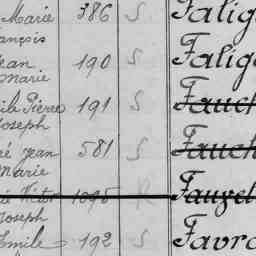 Marie 386 S Falig
ançois
ean 190 S Falig
Marie
ile Pierre 191 S Fauch
Joseph
é Jean 581 S Fauch
Marie
Victor 1095 R Fauvel
Joseph
Emile 192 S Favr